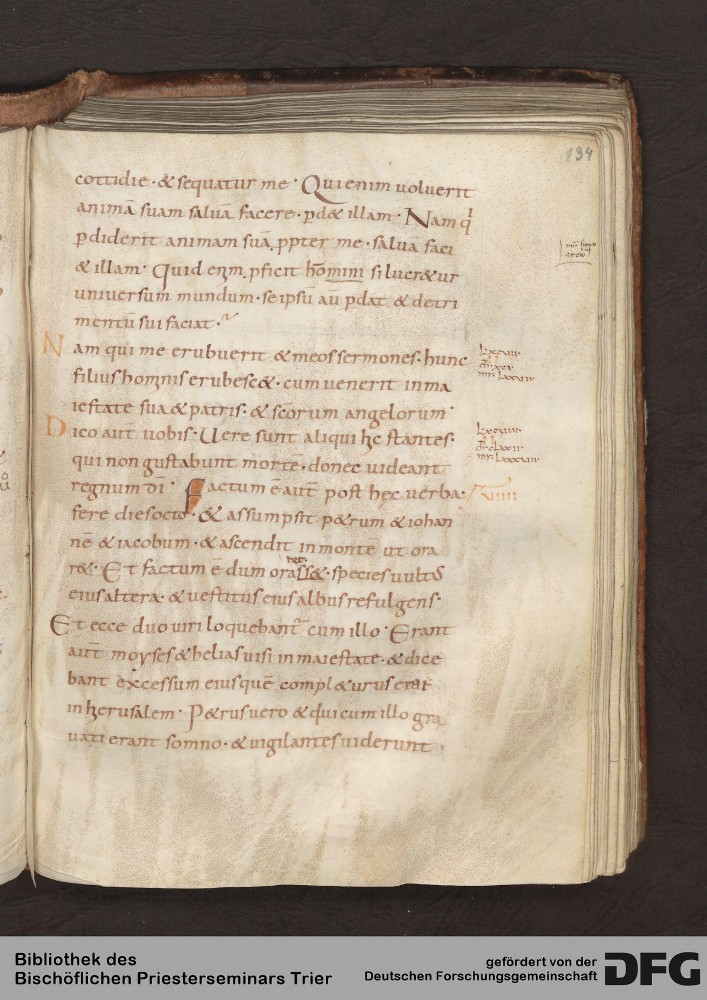 134
cottidie · & sequatur me · Qui enim uoluerit
animā suam saluā facere · pd& illam · Nam q
pdiderit animam suā ppter me · saluā faci
& illam · Quid enm pficit homini si lucr&ur
universum mundum · se ipsū au pdat & detri
mentū sui faciat ·
Nam qui me erubuerit & meos sermones · hunc
filius hominis erubesc& · cum uenerit in ma
iestate sua & patris · & scōrum angelorum ·
Dico aut̄ uobis · Uere sunt aliqui hc stantes ·
qui non gustabunt mortē · donec uideant
regnum dī · Factum ē aut̄ post hec uerba ·
fere dies octo · & assumpsit p&rum & iohan
nē & iacobum · & ascendit in montē ut ora
r& · Et factum ē dum orass& · species uultus
eius altera · & uestitus eius albus refulgens ·
Et ecce duo uiri loquebant cum illo · Erant
aut̄ moyses & helias uisi in maiestate · & dice
bant excessum eius quē compl&urus erat
in hierusalem · P&rus uero & qui cum illo gra
uati erant somno · & uigilantes uiderunt ·
Bibliothek des
Bischöflichen Priesterseminars Trier
gefördert von der
Deutschen Forschungsgemeinschaft
DFG